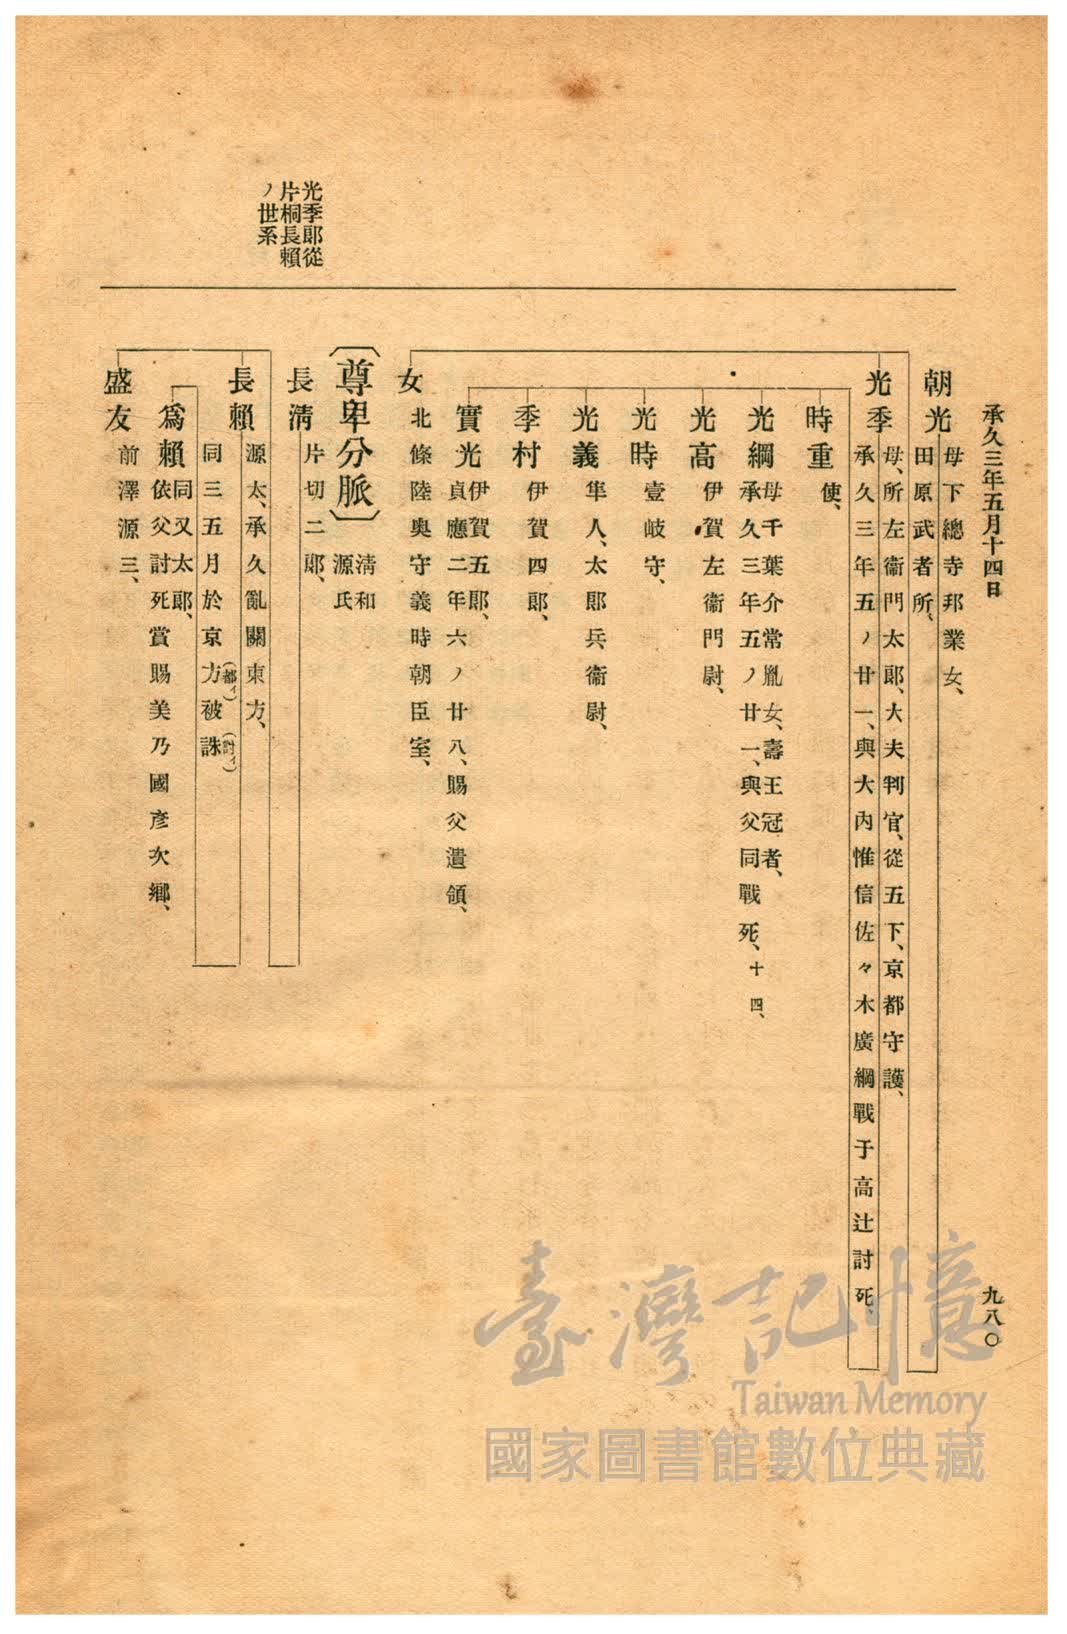 承久三年五月十四日
九八〇
光季郎從
片桐長賴
ノ世系
朝光
母下總寺邦業女、
田原武者所、
光季
母、所左衞門太郎、大夫判官、從五下、京都守護、
承久三年五ノ廿一、與大內惟信佐々木廣綱戰于高辻討死、
時重
使、
光綱
母千葉介常胤女、壽王冠者、
承久三年五ノ廿一、與父同戰死、十四、
光高
伊賀左衞門尉、
光時
壹岐守、
光義
隼人、太郎兵衞尉、
季村
伊賀四郎、
實光
伊賀五郎、
貞應二年六ノ廿八、賜父遺領、
女
北條陸奧守義時朝臣室、
〔尊卑分脈〕
淸和
源氏
長淸
片切二郎、
長賴
源太、承久亂關東方、
同三五月於京方(都イ)被誅(討イ)
爲賴
同又太郎、
依父討死賞賜美乃國彥次鄕、
盛友
前澤源三、
臺灣記憶
Taiwan Memory
國家圖書館數位典藏